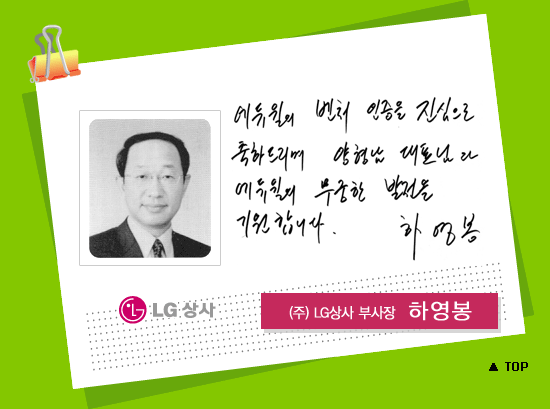 에듀윌의 벤처 인증을 진심으로
축하드리며 양형남 대표님과
에듀윌의 무궁한 발전을
기원합니다.
하영봉
LG 상사
(주) LG상사 부사장 하영봉
▲ TOP